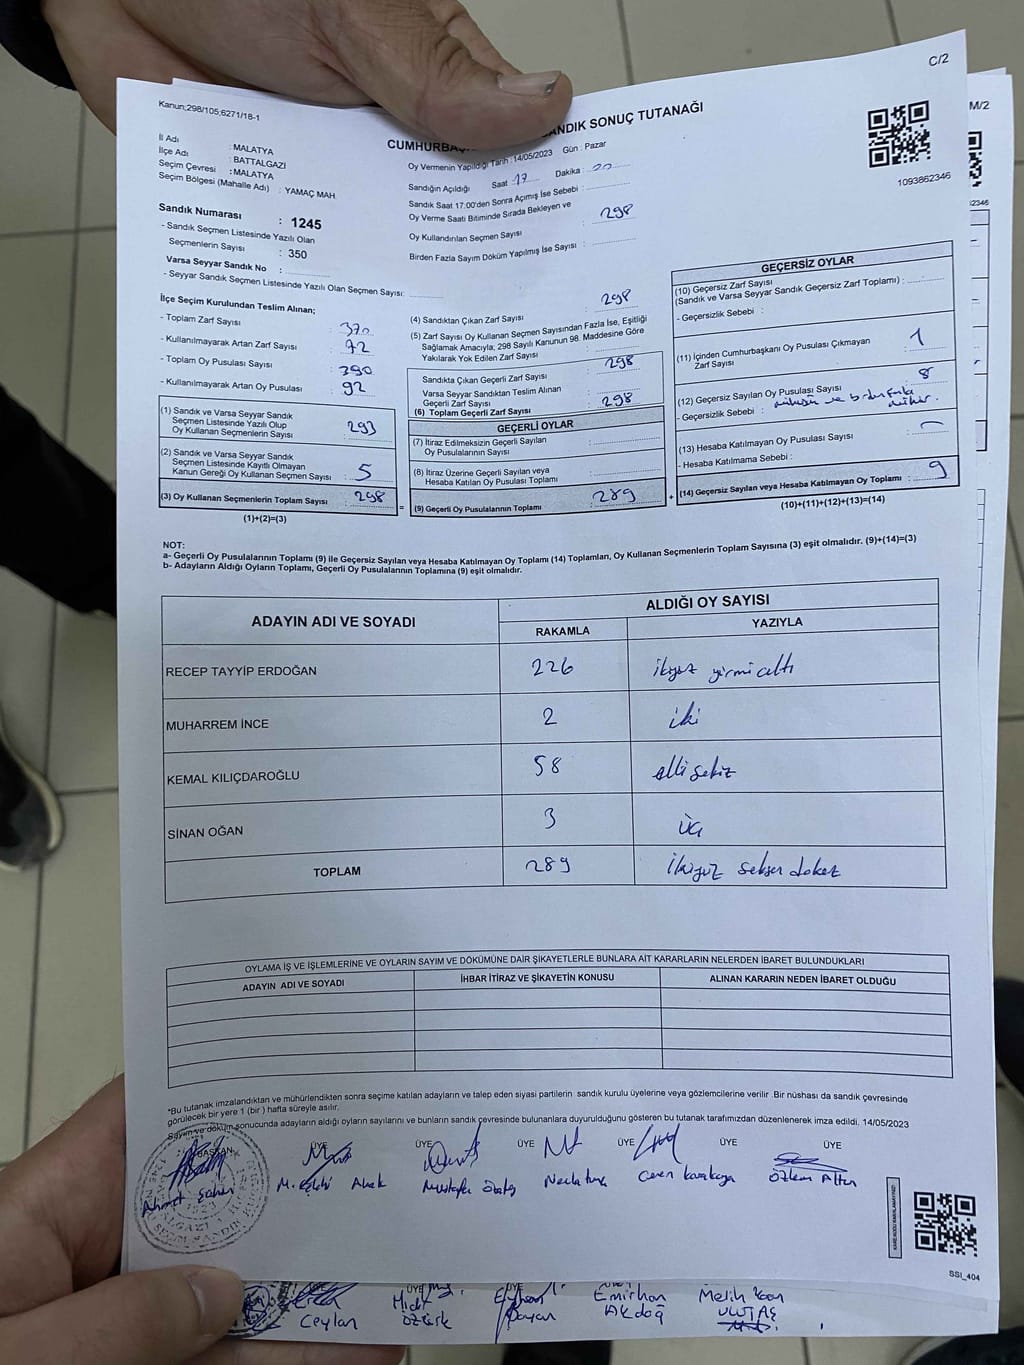 C/2
Kanun;298/105,6271/18-1
CUMHURBAŞ SANDIK SONUÇ TUTANAĞI
İl Adı : MALATYA
İlçe Adı : BATTALGAZİ
Seçim Çevresi : MALATYA
Seçim Bölgesi (Mahalle Adı) : YAMAÇ MAH.
Sandık Numarası : 1245
- Sandık Seçmen Listesinde Yazılı Olan
Seçmenlerin Sayısı : 350
Varsa Seyyar Sandık No :
- Seyyar Sandık Seçmen Listesinde Yazılı Olan Seçmen Sayısı:
Oy Vermenin Yapıldığı Tarih :14/05/2023 Gün : Pazar
Sandığın Açıldığı Saat 17 Dakika : 20
Sandık Saat 17:00'den Sonra Açımış İse Sebebi :
Oy Verme Saati Bitiminde Sırada Bekleyen ve
Oy Kullandırılan Seçmen Sayısı 298
Birden Fazla Sayım Döküm Yapılmış İse Sayısı :
1093862346
M/2
İlçe Seçim Kurulundan Teslim Alınan;
- Toplam Zarf Sayısı : 370
- Kullanılmayarak Artan Zarf Sayısı : 72
- Toplam Oy Pusulası Sayısı : 390
- Kullanılmayarak Artan Oy Pusulası : 92
(1) Sandık ve Varsa Seyyar Sandık
Seçmen Listesinde Yazılı Olup
Oy Kullanan Seçmenlerin Sayısı : 293
(2) Sandık ve Varsa Seyyar Sandık
Seçmen Listesinde Kayıtlı Olmayan
Kanun Gereği Oy Kullanan Seçmen Sayısı : 5
(3) Oy Kullanan Seçmenlerin Toplam Sayısı : 298
(1)+(2)=(3)
(4) Sandıktan Çıkan Zarf Sayısı 298
(5) Zarf Sayısı Oy Kullanan Seçmen Sayısından Fazla İse, Eşitliği
Sağlamak Amacıyla, 298 Sayılı Kanunun 98. Maddesine Göre
Yakılarak Yok Edilen Zarf Sayısı
Sandıkta Çıkan Geçerli Zarf Sayısı 298
Varsa Seyyar Sandıktan Teslim Alınan
Geçerli Zarf Sayısı
(6) Toplam Geçerli Zarf Sayısı 298
GEÇERLİ OYLAR
(7) İtiraz Edilmeksizin Geçerli Sayılan
Oy Pusulalarının Sayısı
(8) İtiraz Üzerine Geçerli Sayılan veya
Hesaba Katılan Oy Pusulası Toplamı
(9) Geçerli Oy Pusulalarının Toplamı : 289
GEÇERSİZ OYLAR
(10) Geçersiz Zarf Sayısı
(Sandık ve Varsa Seyyar Sandık Geçersiz Zarf Toplamı) :
- Geçersizlik Sebebi :
(11) İçinden Cumhurbaşkanı Oy Pusulası Çıkmayan
Zarf Sayısı : 1
(12) Geçersiz Sayılan Oy Pusulası Sayısı : 8
- Geçersizlik Sebebi : mühürsüz ve birden fazla mühür.
(13) Hesaba Katılmayan Oy Pusulası Sayısı : –
- Hesaba Katılmama Sebebi :
(14) Geçersiz Sayılan veya Hesaba Katılmayan Oy Toplamı : 9
(10)+(11)+(12)+(13)=(14)
NOT:
a- Geçerli Oy Pusulalarının Toplamı (9) ile Geçersiz Sayılan veya Hesaba Katılmayan Oy Toplamı (14) Toplamları, Oy Kullanan Seçmenlerin Toplam Sayısına (3) eşit olmalıdır. (9)+(14)=(3)
b- Adayların Aldığı Oyların Toplamı, Geçerli Oy Pusulalarının Toplamına (9) eşit olmalıdır.
ADAYIN ADI VE SOYADI
ALDIĞI OY SAYISI
RAKAMLA YAZIYLA
RECEP TAYYİP ERDOĞAN 226 ikiyüz yirmi altı
MUHARREM İNCE 2 iki
KEMAL KILIÇDAROĞLU 58 elli sekiz
SİNAN OĞAN 3 üç
TOPLAM 289 ikiyüz seksen dokuz
OYLAMA İŞ VE İŞLEMLERİNE VE OYLARIN SAYIM VE DÖKÜMÜNE DAİR ŞİKAYETLERLE BUNLARA AİT KARARLARIN NELERDEN İBARET BULUNDUKLARI
ADAYIN ADI VE SOYADI İHBAR İTİRAZ VE ŞİKAYETİN KONUSU ALINAN KARARIN NEDEN İBARET OLDUĞU
*Bu tutanak imzalandıktan ve mühürlendikten sonra seçime katılan adayların ve talep eden siyasi partilerin sandık kurulu üyelerine veya gözlemcilerine verilir .Bir nüshası da sandık çevresinde
görülecek bir yere 1 (bir ) hafta süreyle asılır.
Sayım ve döküm sonucunda adayların aldığı oyların sayılarını ve bunların sandık çevresinde bulunanlara duyurulduğunu gösteren bu tutanak tarafımızdan düzenlenerek imza edildi. 14/05/2023
BAŞKAN ÜYE ÜYE ÜYE ÜYE ÜYE ÜYE
Ahmet Şahin Mustafa Necla Tunç Ceren Karakaya Özlem Altun
SSI_404
ÜYE ÜYE
Ceylan Öztürk Emirhan Akdoğ Melih Kaan ULUTAŞ